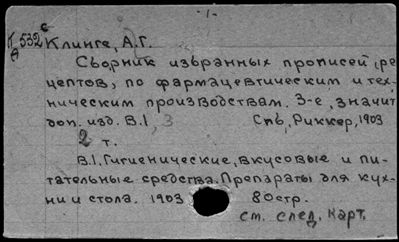 - 1 -
К 532 с
А
Клинге, А.Г.
Сборник избранных прописей, ре
цептов, по фармацевтическим и тех-
ническим производствам. 3-е, значит
доп. изд. В.1, 3 Спб, Риккер, 1903
2 т.
В.1. Гигиенические, вкусовые и пи-
тательные средства. Препараты для кух-
ни и стола. 1903 80 стр.
см. след. карт.